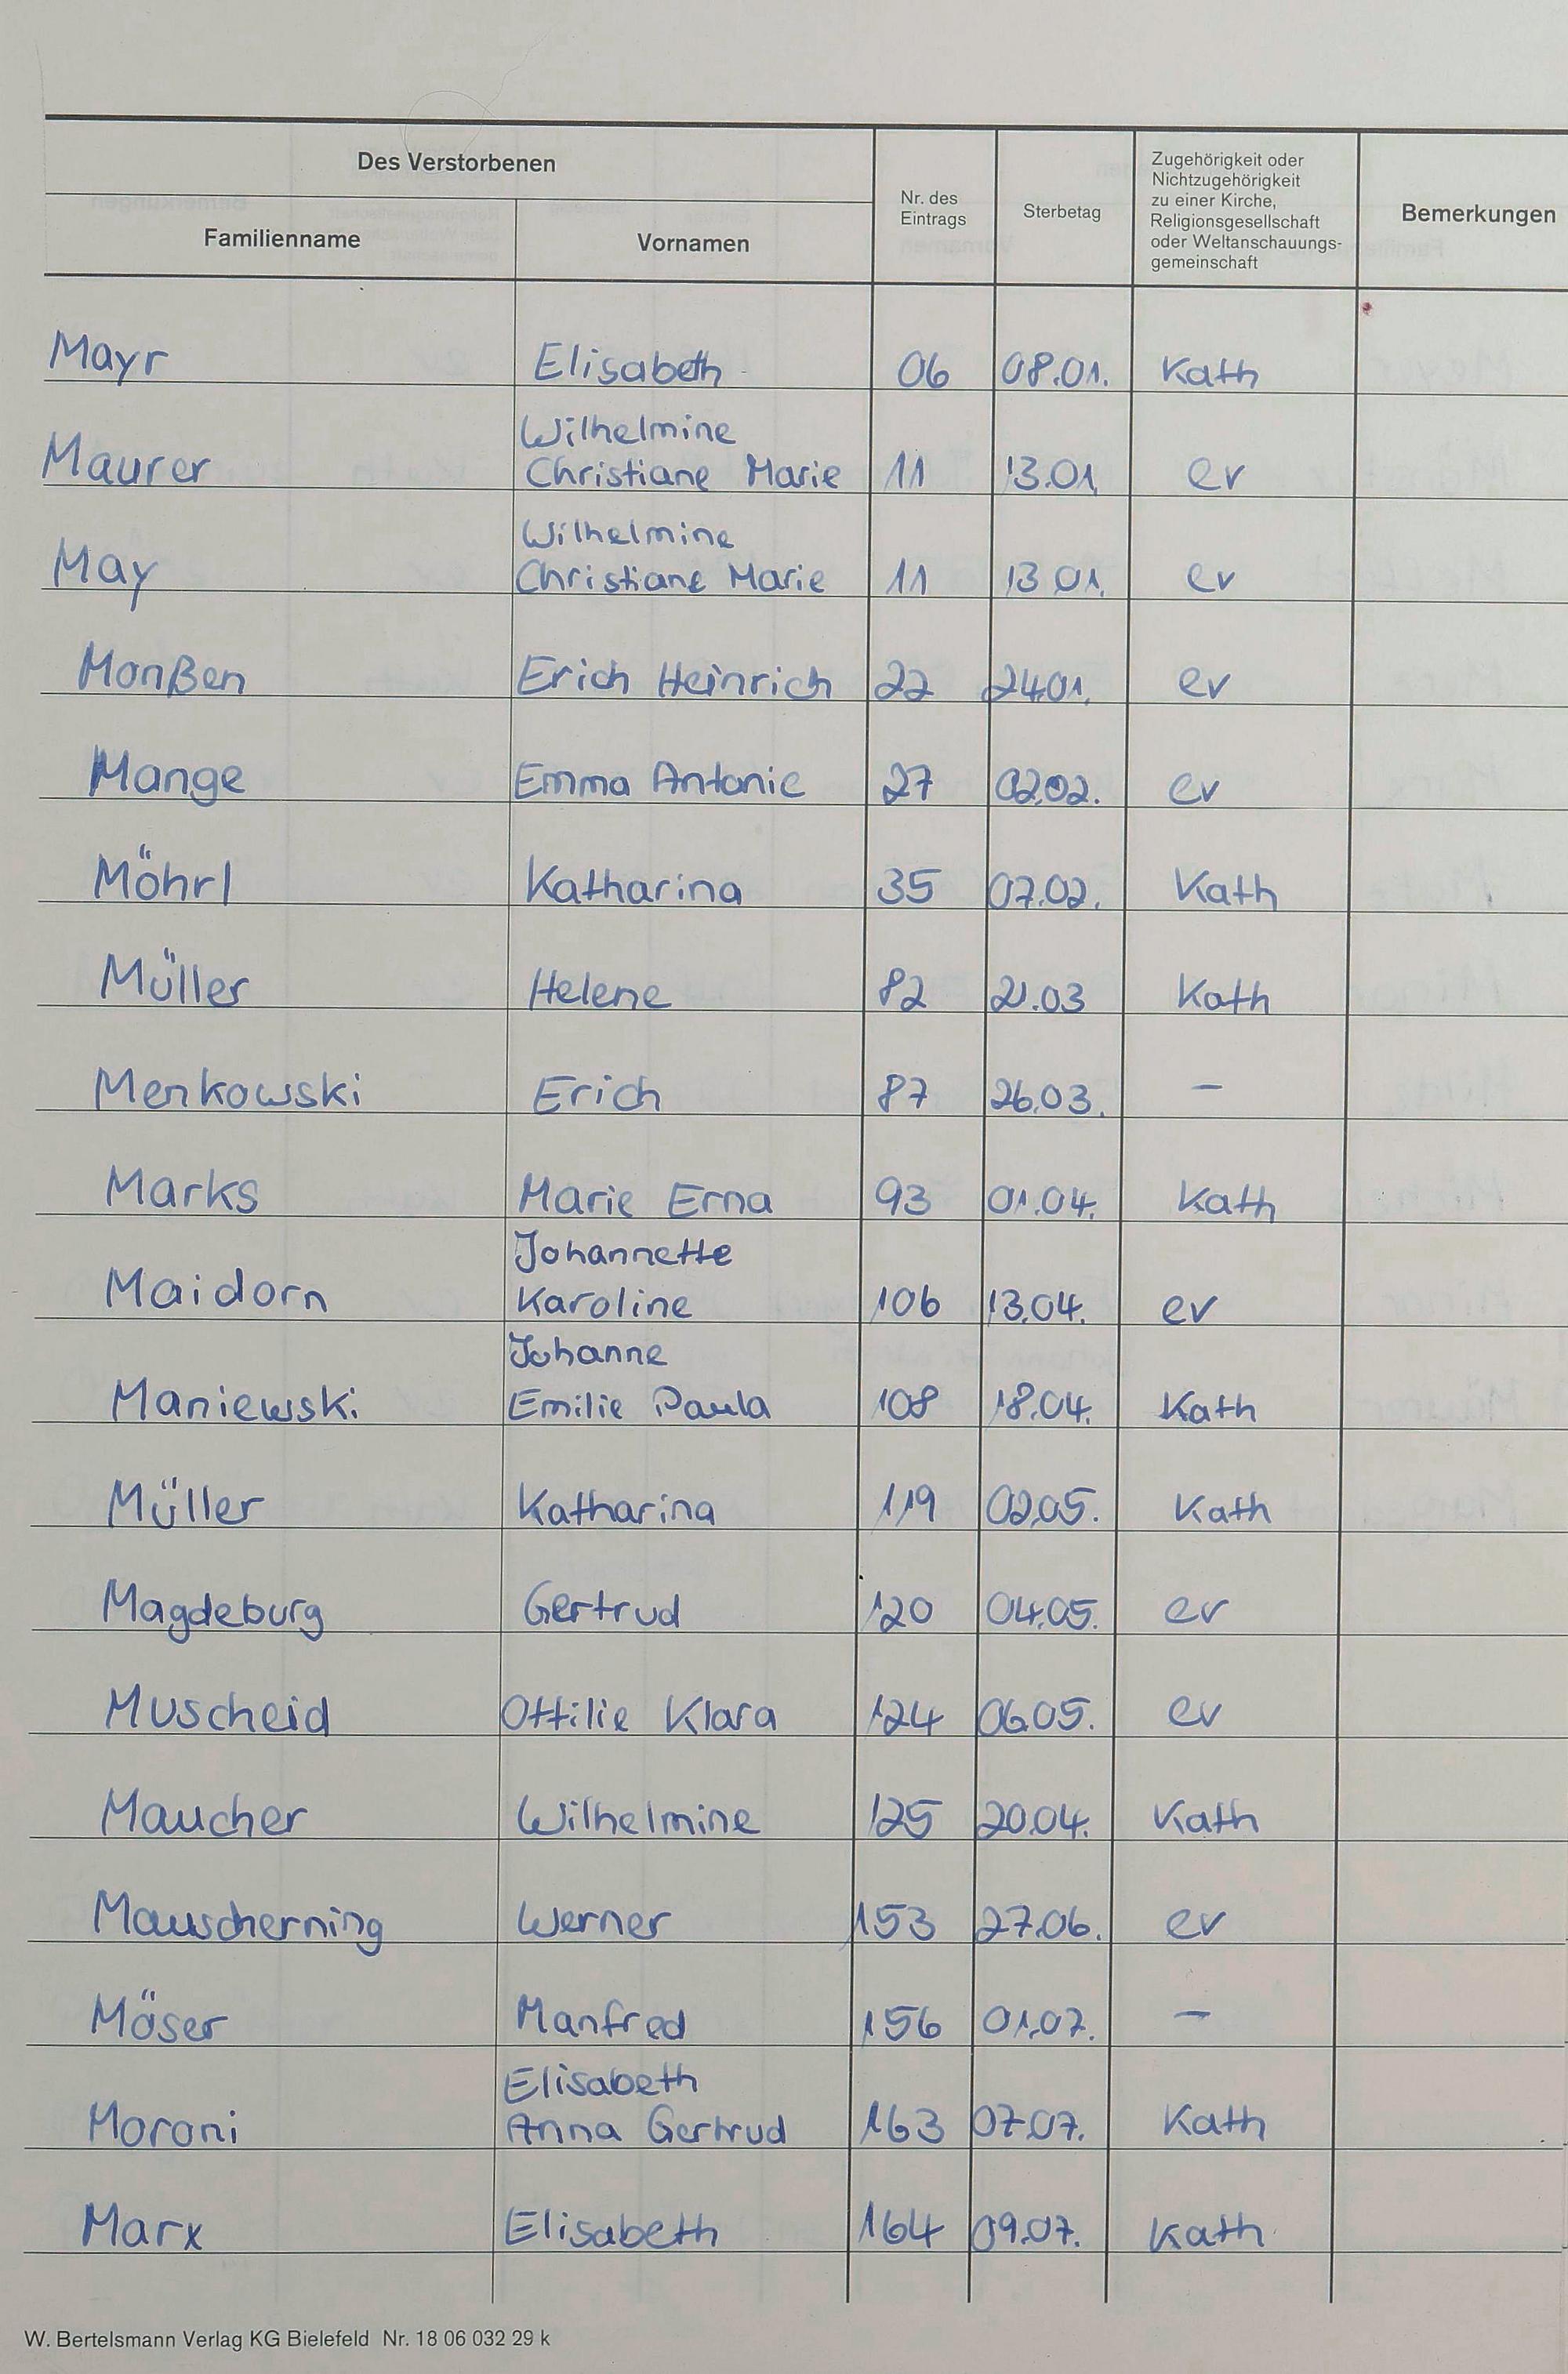 Des Verstorbenen
Familienname Vornamen
Nr. des
Eintrags
Sterbetag
Zugehörigkeit oder
Nichtzugehörigkeit
zu einer Kirche,
Religionsgesellschaft
oder Weltanschauungs-
gemeinschaft
Bemerkungen
Mayr Elisabeth 06 08.01. Kath
Wilhelmine
Maurer Christiane Marie 11 13.01. ev
Wilhelmine
May Christiane Marie 11 13 01. ev
Monßen Erich Heinrich 22 24.01. ev
Mange Emma Antonie 27 02.02. ev
Möhrl Katharina 35 07.02. Kath
Müller Helene 82 21.03 Kath
Menkowski Erich 87 26.03. –
Marks Marie Erna 93 01.04. Kath
Johannette
Maidorn Karoline 106 13.04. ev
Johanne
Maniewski Emilie Paula 108 18.04. Kath
Müller Katharina 119 02.05. Kath
Magdeburg Gertrud 120 04.05. ev
Muscheid Ottilie Klara 124 06.05. ev
Maucher Wilhelmine 125 20.04. Kath
Mauscherning Werner 153 27.06. ev
Möser Manfred 156 01.07. –
Elisabeth
Moroni Anna Gertrud 163 07.07. Kath
Marx Elisabeth 164 09.07. Kath
W. Bertelsmann Verlag KG Bielefeld Nr. 18 06 032 29 k